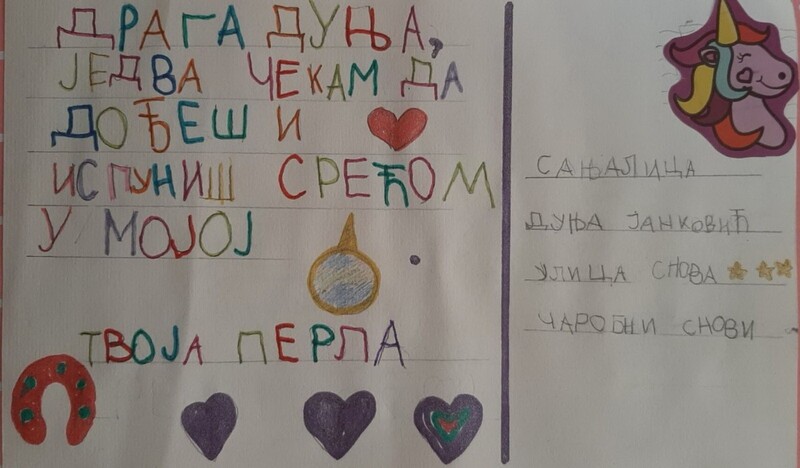 ДРАГА ДУЊА,
ЈЕДВА ЧЕКАМ ДА
ДОЂЕШ И
ИСПУНИШ СРЕЋОМ
У МОЈОЈ
.
ТВОЈА ПЕРЛА
САЊАЛИЦА
ДУЊА ЈАНКОВИЋ
УЛИЦА СНОВА
ЧАРОБНИ СНОВИ